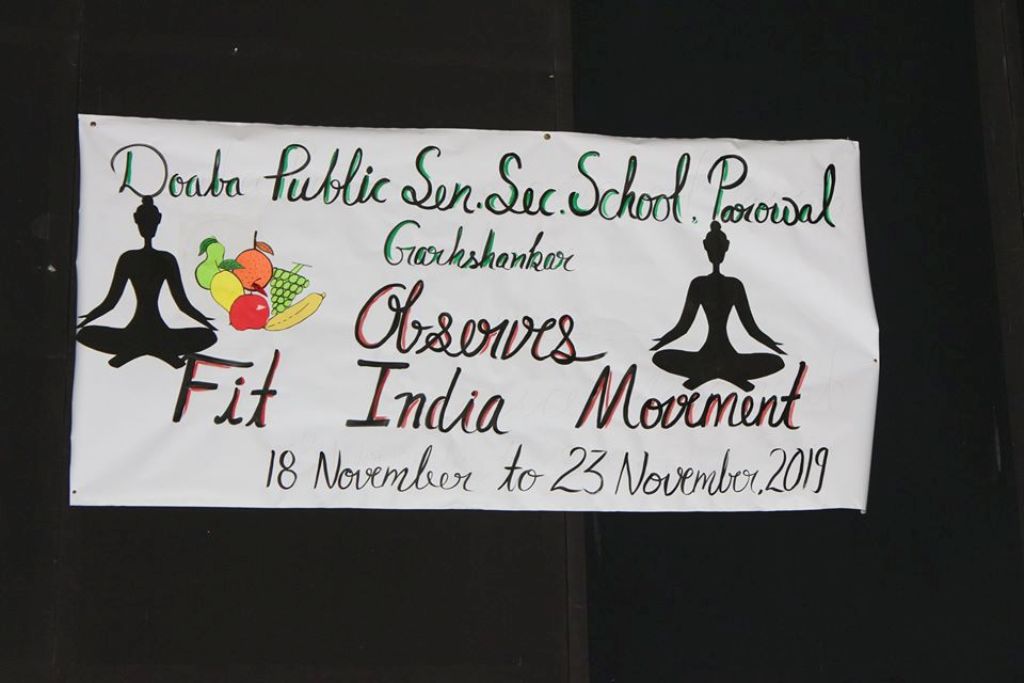 Doaba Public Sen. Sec. School, Parowal
Garhshankar
Observes
Fit India Movement
18 November to 23 November, 2019